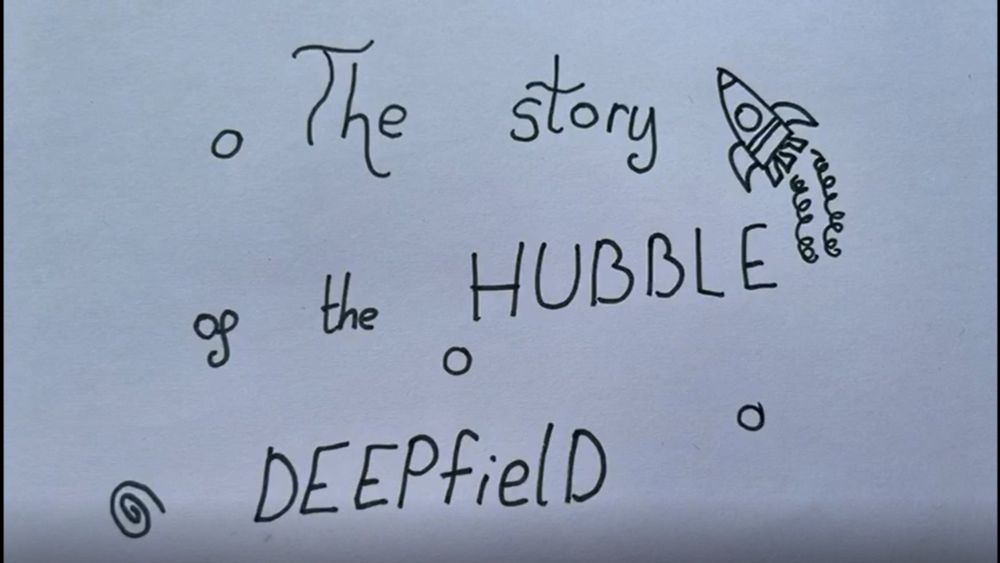 The story
of the HUBBLE
DEEPfielD